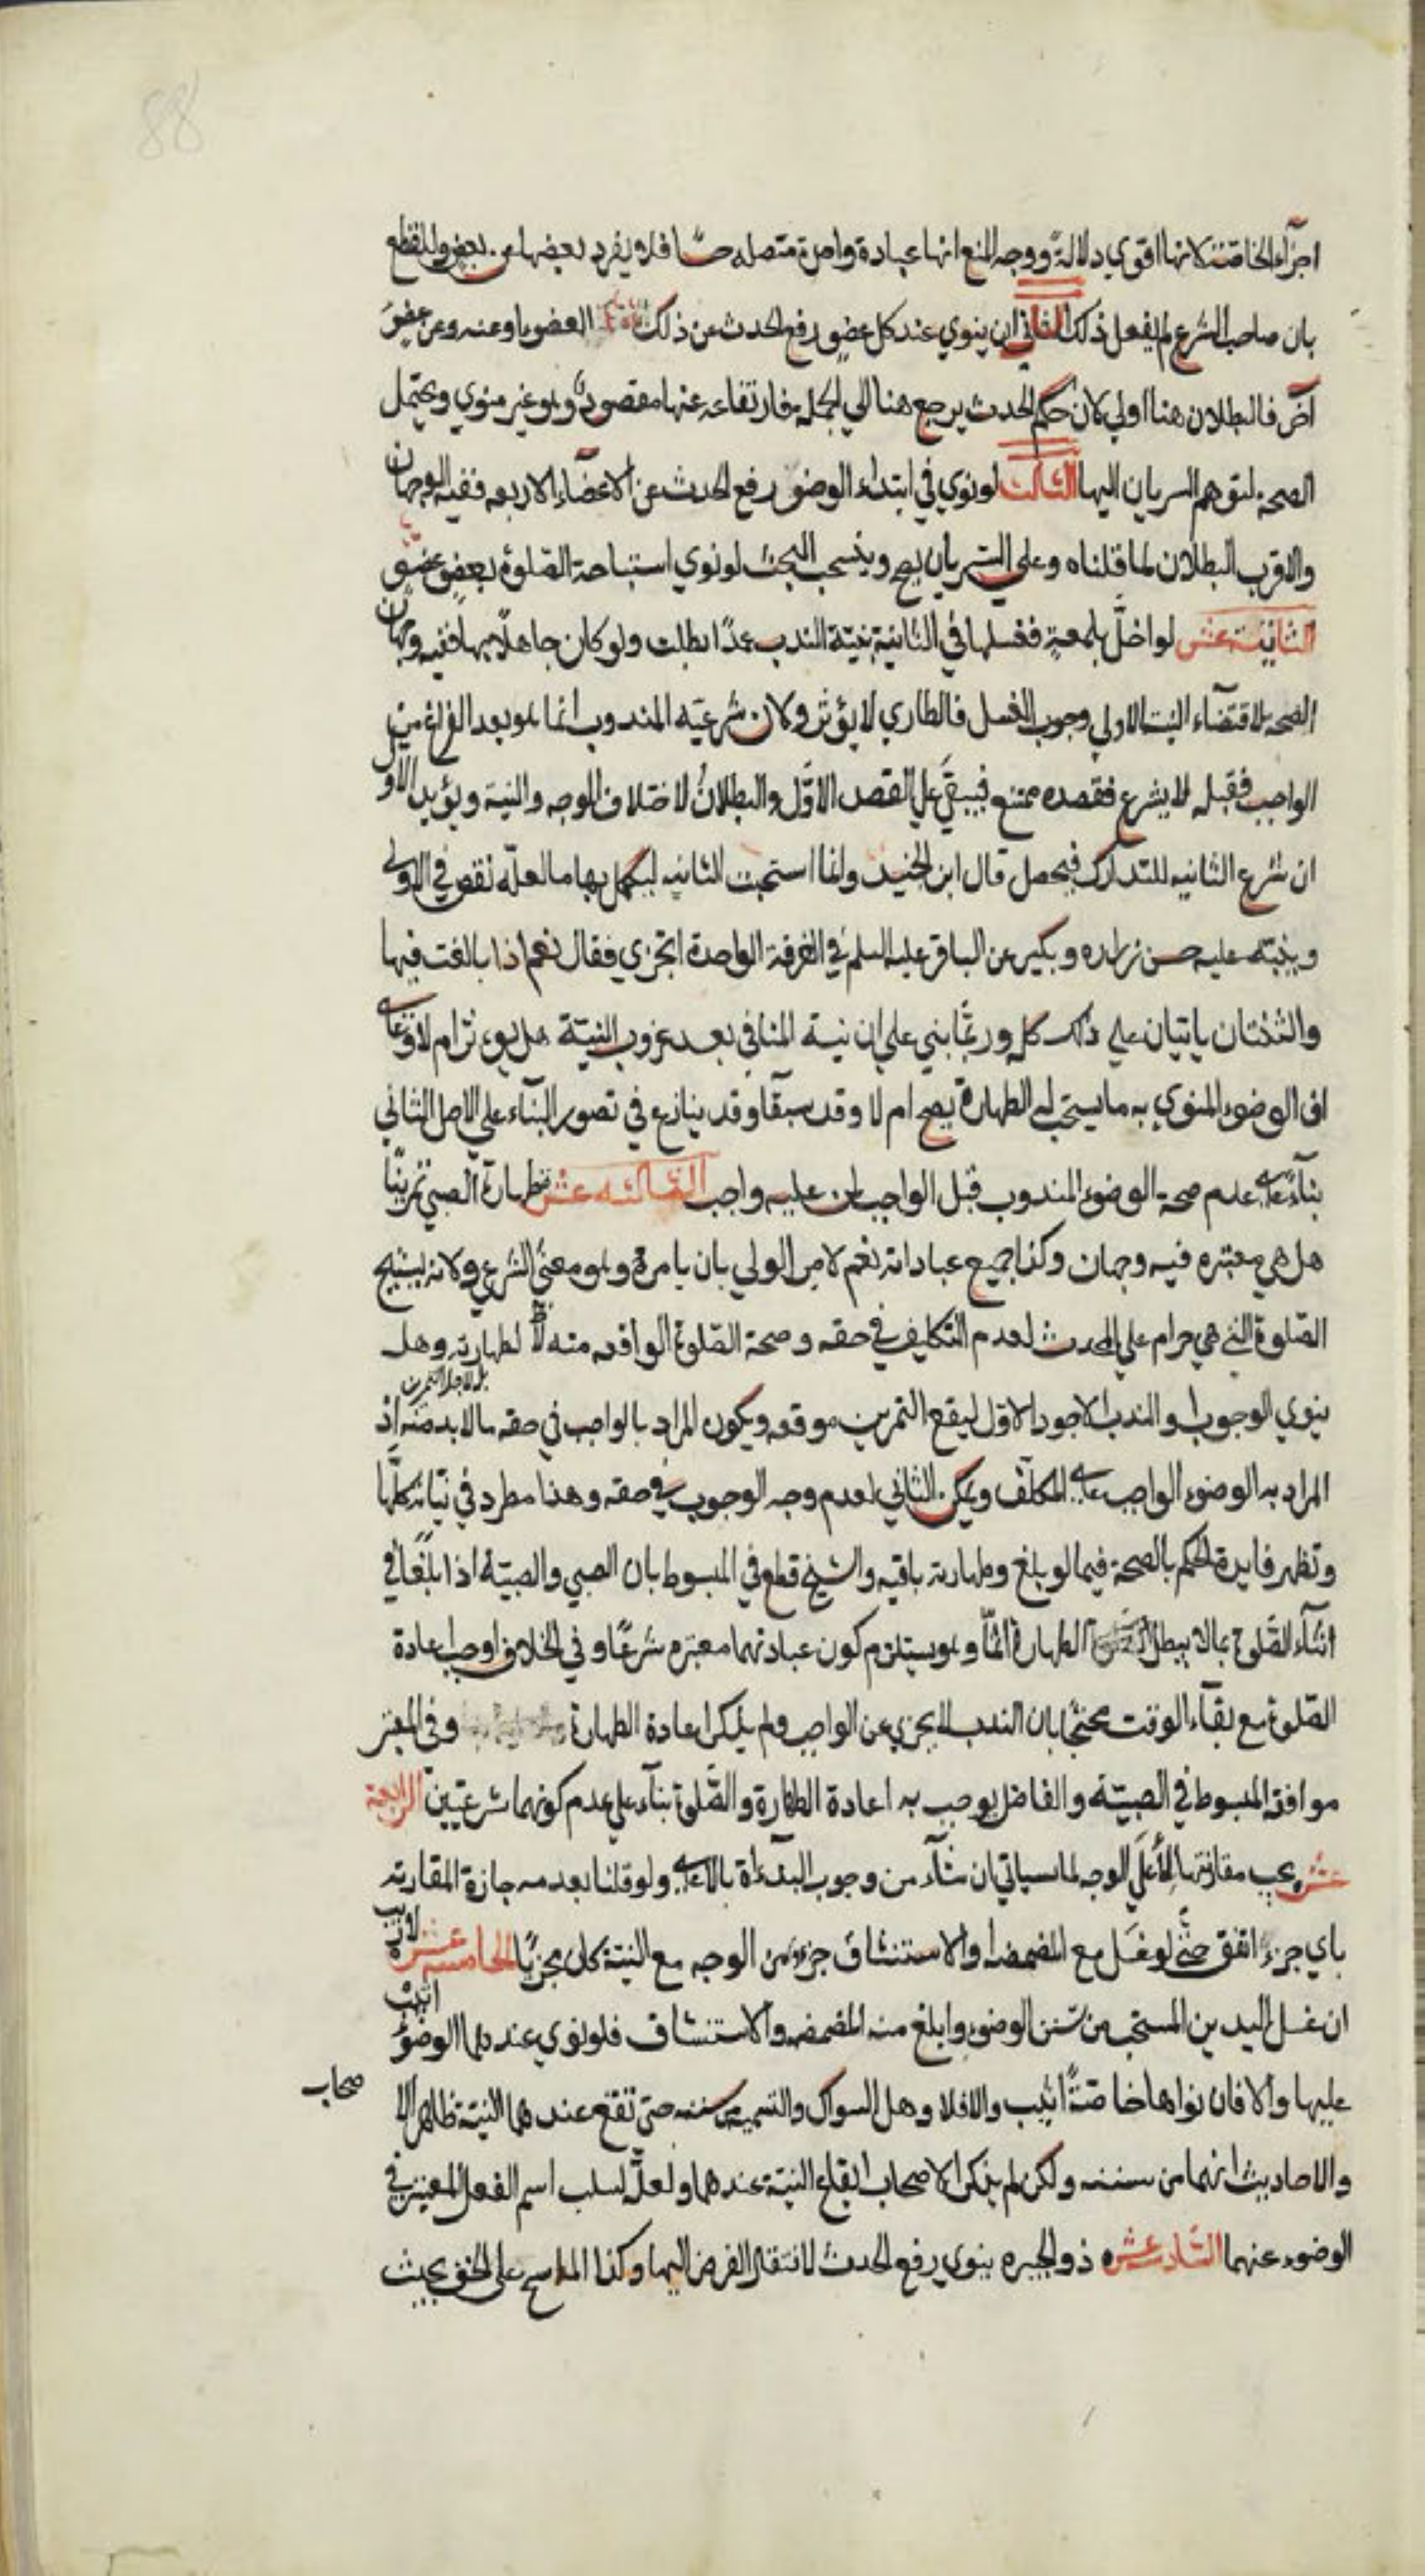 88
اجزاء الخاصة لانها اقوي دلالة ووجه المنع انها عبادة واحدة متصله حسّا فلا يفرد بعضها عن بعض وللقطع
بان صاحب الشرع لم يفعل ذلك الثاني ان ينوي عند كل عضو رفع الحدث عن ذلك العضو او عنه وعن عضو
آخر فالبطلان هنا اولي لان حكم الحدث يرجع هنا الي الجملة فارتفاعه عنها مقصود وهو غير منوي ويحتمل
الصحة لتوهم السريان اليها الثالث لو نوي في ابتداء الوضوء رفع الحدث عن الاعضاء الاربعه ففيه الوجهان
والاقرب البطلان لما قلناه وعلي السريان يصح وينسحب البحث لو نوي استباحة الصّلوة بعضو عضو
الثانية عشر لو اخلّ بلمعة فغسلها في الثانية بنيّة الندب عمدًا بطلت ولو كان جاهلًا بها ففيه وجهان
الصحه لاقتضاء النية الاولي وجوب الغسل فالطاري لا يؤثر ولان شرعيّه المندوب انما هو بعد الفراغ من
الواجب فقبله لا يشرع فقصده ممتنع فيبقي علي القصد الاوّل والبطلان لاختلاف الوجه والنية ويؤيد الاول
ان شرع الثانيه للتدارك فيحصل قال ابن الجنيد وانما استحبت الثانيه ليكمل بها ما لعلّه نقص في الاولي
وينبّه عليه حسن زراره وبكير عن الباقر عليه السلم في الغرفة الواحدة اتجزي فقال نعم اذا بالغت فيها
والثنتان ياتيان علي ذلك كله وربّما بني علي ان نية المنافي بعد عزوب النيّة هل يؤثر ام لا وعلي
ان الوضوء المنوي به ما يستحب له الطهارة يصح ام لا وقد سبقا وقد ينازع في تصور البناء علي الاصل الثاني
بناء علي عدم صحة الوضوء المندوب قبل الواجب لمن عليه واجب الثالثه عشر طهارة الصبي تمرينًا
هل هي معتبره فيه وجهان وكذا جميع عباداته نعم لامر الولي بان يامره وهو معني الشرعي ولانه يستبيح
الصّلوة التي هي حرام علي المحدث لا لعدم التكليف في حقه وصحة الصّلوة الواقعه منه لا لطهارته وهل
بل لاجل التمرين
ينوي الوجوب او الندب الاجود الاوّل ليقع التمرين موقعه ويكون المراد بالواجب في حقه ما لا بد منه اذ
المراد به الوضوء الواجب علي المكلّف ويمكن الثاني لعدم وجه الوجوب في حقه وهذا مطرد في نيّاته كلّها
وتظهر فايدة الحكم بالصحة فيما لو بلغ وطهارته باقيه والشيخ قطع في المبسوط بان الصبي والصبيّة اذا بلغا في
اثناء الصّلوة بما لا يبطل الطهارة اتمّا وهو يستلزم كون عبادتهما معتبره شرعًا وفي الخلاف اوجب اعادة
الصّلوة مع بقاء الوقت محتجًا بان الندب لا يجزي عن الواجب ولم يذكر اعادة الطهارة وفي المعتبر
موافقة المبسوط في الصبيّة والفاضل يوجب به اعادة الطهارة والصّلوة بناء علي عدم كونهما شرعيّين الرابعة
عشر يجب مقارنتها لاعلي الوجه لما سياتي ان شاء من وجوب البداءة بالاعلي ولو قلنا بعدمه جازة المقارنه
باي جزء اتفق حتّي لو غسل مع المضمضه او الاستنشاق جزءًا من الوجه مع النيّة كان مجزيًا الخامسه عشره لا ريب
ان غسل اليدين المستحب من سنن الوضوء وابلغ منه المضمضه والاستنشاق فلو نوي عندهما الوضوء اثيب
عليها والا فان نواها خاصّةً اثيب والا فلا وهل السواك والتسميه من سننه حتي تقع عندهما النيّة ظاهر الا
صحاب
والاحاديث انهما من سننه ولكن لم يذكر الاصحاب ايقاع النيّة عندهما ولعلّه لسلب اسم الفعل المعتبر في
الوضوء عنهما السّادسه عشره ذو الجبيره ينوي رفع الحدث لانتقال الفرض اليها وكذا الماسح علي الخف بحيث